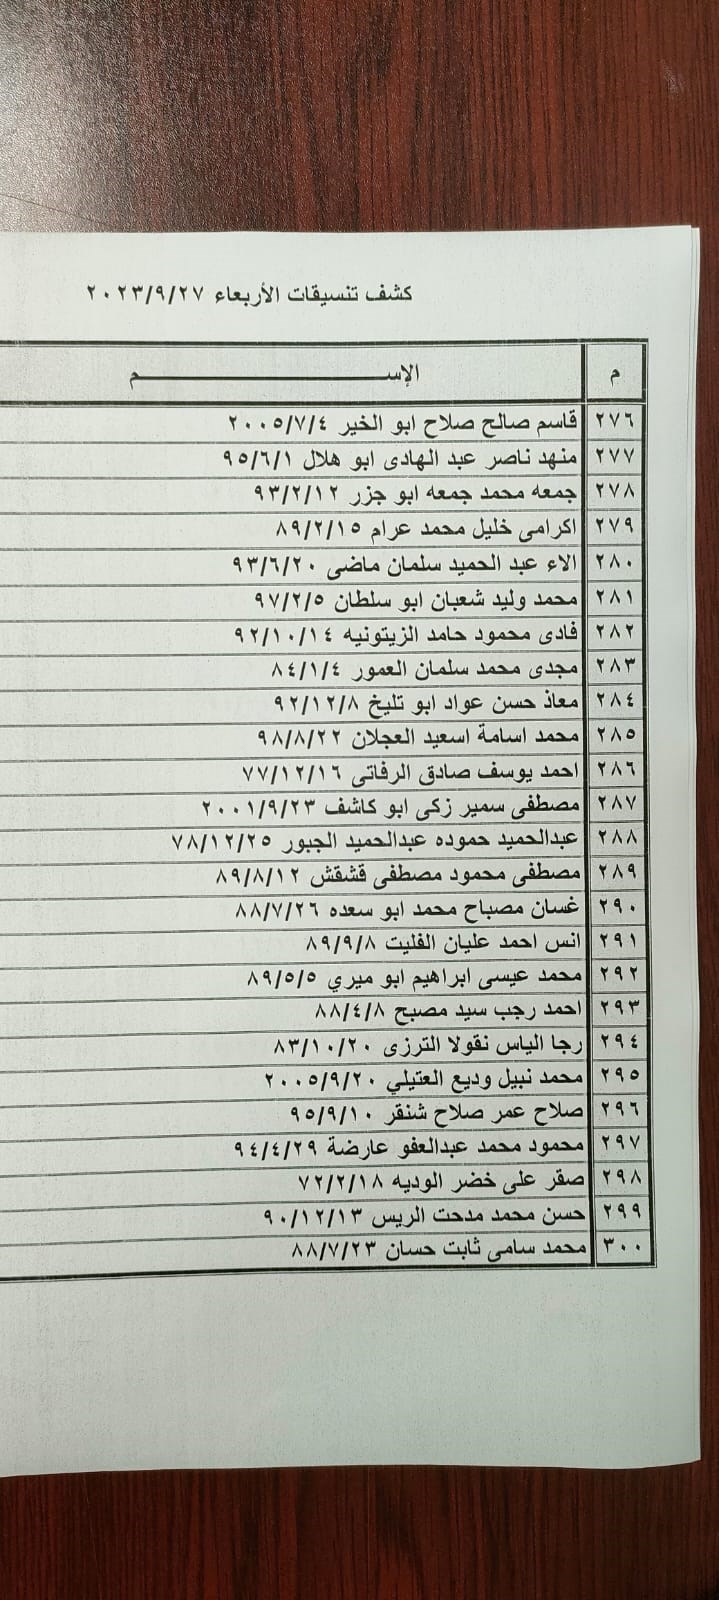 كشف تنسيقات الأربعاء ٢٠٢٣/٩/٢٧
م الإســـــــــــــــــــــــــــــم
٢٧٦ قاسم صالح صلاح ابو الخير ٢٠٠٥/٧/٤
٢٧٧ منهد ناصر عبد الهادى ابو هلال ٩٥/٦/١
٢٧٨ جمعه محمد جمعه ابو جزر ٩٣/٢/١٢
٢٧٩ اكرامى خليل محمد عرام ٨٩/٢/١٥
٢٨٠ الاء عبد الحميد سلمان ماضى ٩٣/٦/٢٠
٢٨١ محمد وليد شعبان ابو سلطان ٩٧/٢/٥
٢٨٢ فادى محمود حامد الزيتونيه ٩٢/١٠/١٤
٢٨٣ مجدى محمد سلمان العمور ٨٤/١/٤
٢٨٤ معاذ حسن عواد ابو تليخ ٩٢/١٢/٨
٢٨٥ محمد اسامة اسعيد العجلان ٩٨/٨/٢٢
٢٨٦ احمد يوسف صادق الرفاتى ٧٧/١٢/١٦
٢٨٧ مصطفى سمير زكى ابو كاشف ٢٠٠١/٩/٢٣
٢٨٨ عبدالحميد حموده عبدالحميد الجبور ٧٨/١٢/٢٥
٢٨٩ مصطفى محمود مصطفى قشقش ٨٩/٨/١٢
٢٩٠ غسان مصباح محمد ابو سعده ٨٨/٧/٢٦
٢٩١ انس احمد عليان الفليت ٨٩/٩/٨
٢٩٢ محمد عيسى ابراهيم ابو ميري ٨٩/٥/٥
٢٩٣ احمد رجب سيد مصبح ٨٨/٤/٨
٢٩٤ رجا الياس نقولا الترزى ٨٣/١٠/٢٠
٢٩٥ محمد نبيل وديع العتيلي ٢٠٠٥/٩/٢٠
٢٩٦ صلاح عمر صلاح شنقر ٩٥/٩/١٠
٢٩٧ محمود محمد عبدالعفو عارضة ٩٤/٤/٢٩
٢٩٨ صقر على خضر الوديه ٧٢/٢/١٨
٢٩٩ حسن محمد مدحت الريس ٩٠/١٢/١٣
٣٠٠ محمد سامى ثابت حسان ٨٨/٧/٢٣